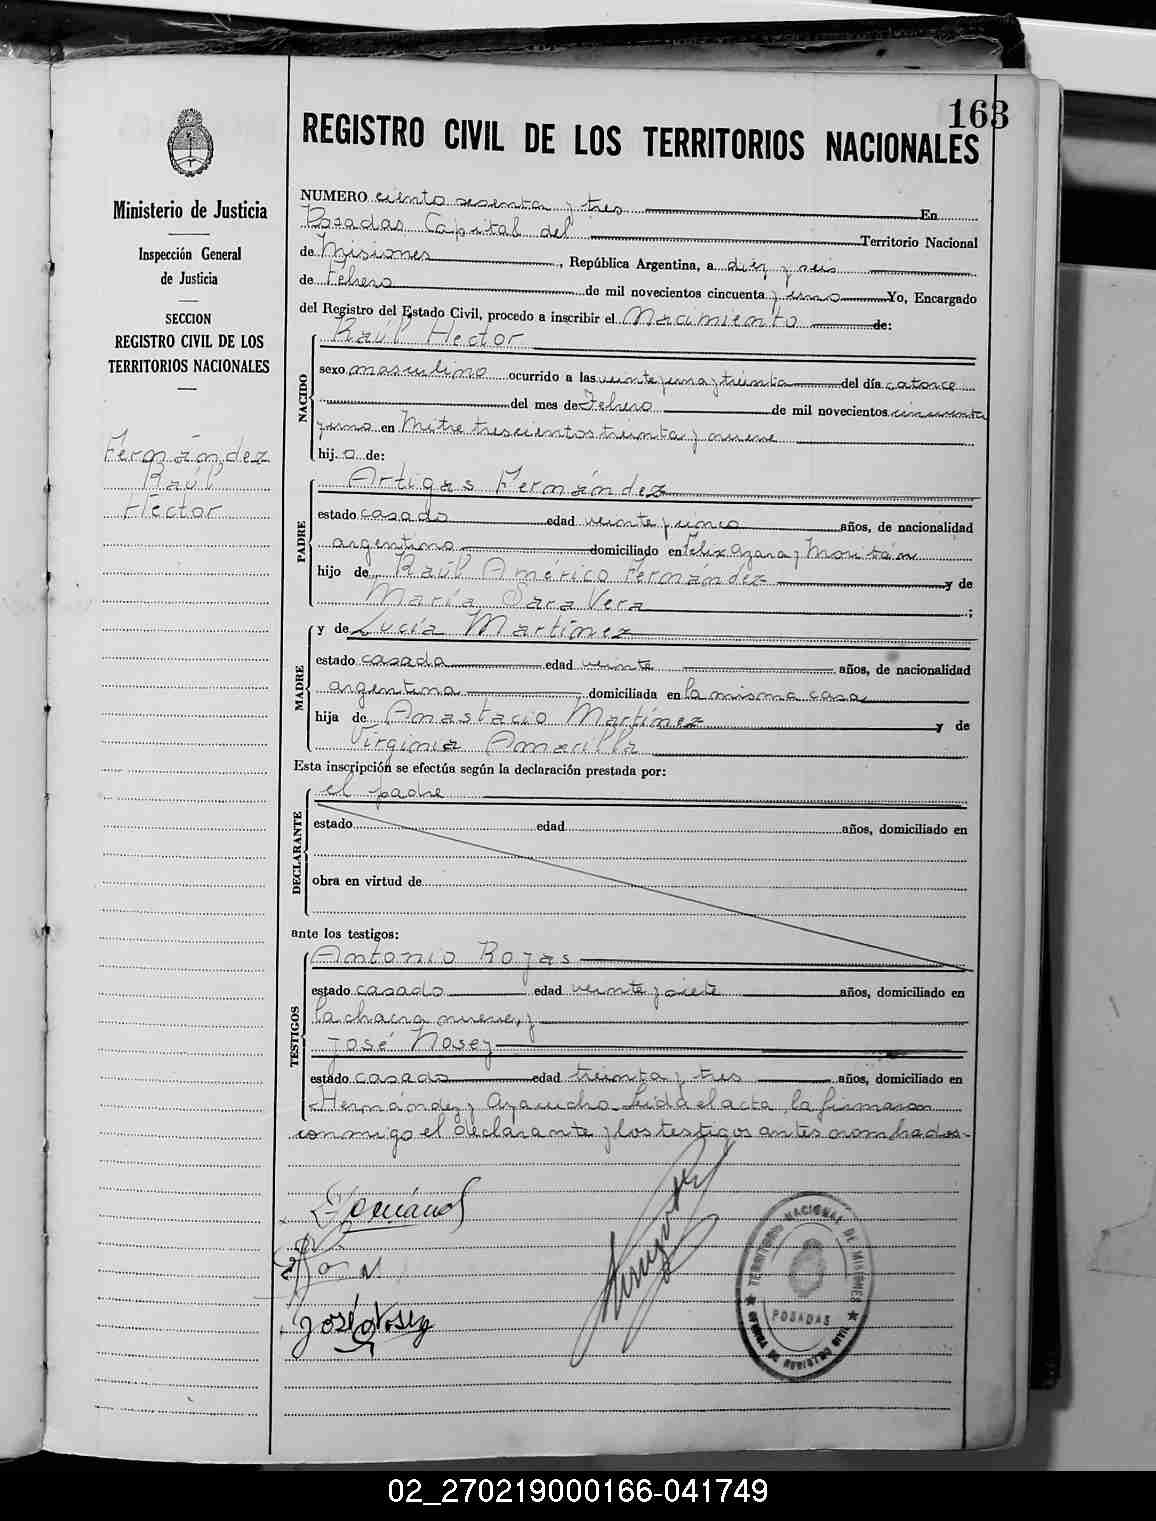 163
REGISTRO CIVIL DE LOS TERRITORIOS NACIONALES
Ministerio de Justicia
Inspección General
de Justicia
SECCION
REGISTRO CIVIL DE LOS
TERRITORIOS NACIONALES
Fernández
Raúl
Hector
NUMERO ciento sesenta y tres En
Posadas Capital del Territorio Nacional
de Misiones, República Argentina, a diez y seis
de Febrero de mil novecientos cincuenta y uno Yo, Encargado
del Registro del Estado Civil, procedo a inscribir el Nacimiento de:
NACIDO
Raúl Hector
sexo masculino ocurrido a las veinte y una y treinta del día catorce
del mes de Febrero de mil novecientos cincuenta
y uno en Mitre trescientos treinta y nueve
hijo de:
PADRE
Artigas Fernández
estado casado edad veinte y cinco años, de nacionalidad
argentino domiciliado en Felix Azara y
hijo de Raúl Américo Fernández y de
María Sara Vera;
MADRE
y de Lucía Martínez
estado casada edad veinte años, de nacionalidad
argentina domiciliada en la misma casa
hija de Anastacio Martínez y de
Virginia Amarilla
Esta inscripción se efectúa según la declaración prestada por:
DECLARANTE
el padre
estado edad años, domiciliado en
obra en virtud de
ante los testigos:
TESTIGOS
Antonio Rojas
estado casado edad veinte y siete años, domiciliado en
la chacra nueve, y
José Nosey
estado casado edad treinta y tres años, domiciliado en
Hernández y Ayacucho. Leída el acta, la firmaron
conmigo el declarante y los testigos antes nombrados.-
José Nosey
TERRITORIO NACIONAL DE MISIONES
POSADAS
OFICINA DE REGISTRO CIVIL
02_270219000166-041749